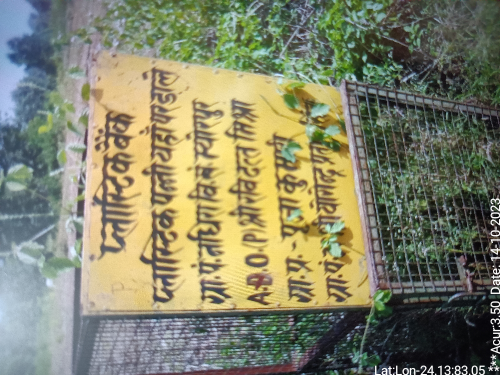 प्लास्टिक बैंक
प्लास्टिक पन्नी यहाँ फेंडाले
ग्रा.पं.तधिरा वि.खं म्योरपुर
ADO.(P) श्री रविदत्त मिश्रा
ग्रा.प्र:- पूजा कुमारी
ग्रा.पं.
Lat:Lon-24,13:83,05
***Acur:3.50 Date: 14-10-2023